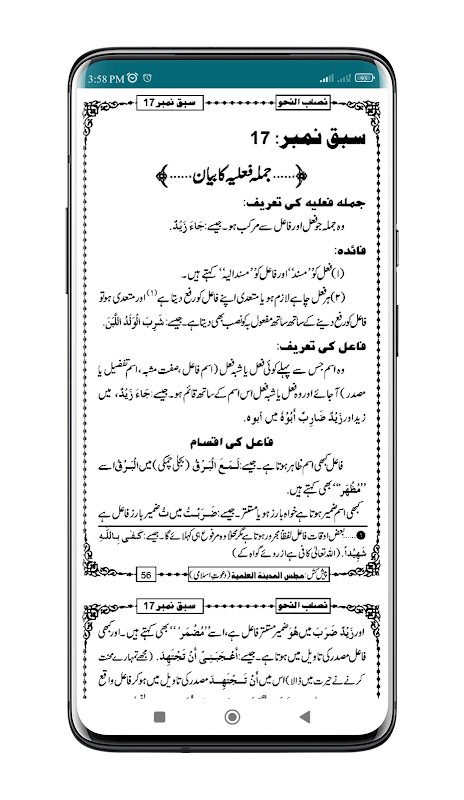 3:58 PM
نصاب النحو سبق نمبر 17
سبق نمبر: 17
﴿......جملہ فعلیہ کا بیان......﴾
جملہ فعلیہ کی تعریف:
وہ جملہ جو فعل اور فاعل سے مرکب ہو۔ جیسے: جَاءَ زَيْدٌ.
فائدہ:
(۱) فعل کو "مسند" اور فاعل کو "مسند الیہ" کہتے ہیں۔
(۲) ہر فعل چاہے لازم ہو یا متعدی اپنے فاعل کو رفع دیتا ہے (۱) اور متعدی ہو تو
فاعل کو رفع دینے کے ساتھ ساتھ مفعول بہ کو نصب بھی دیتا ہے۔ جیسے: شَرِبَ الْوَلَدُ اللَّبَنَ.
فاعل کی تعریف:
وہ اسم جس سے پہلے کوئی فعل یا شبہ فعل (اسم فاعل، صفت مشبہ، اسم تفضیل یا
مصدر) آجائے اور وہ فعل یا شبہ فعل اس اسم کے ساتھ قائم ہو۔ جیسے: جَاءَ زَيْدٌ، میں
زید اور زَيْدٌ ضَارِبٌ أَبُوْهُ میں أبوه.
فاعل کی اقسام
فاعل کبھی اسم ظاہر ہوتا ہے۔ جیسے: لَمَعَ الْبَرْقُ (بجلی چمکی) میں الْبَرْقُ اسے
"مُظْهَر" بھی کہتے ہیں.
کبھی اسم ضمیر ہوتا ہے خواہ بارز ہو یا مستتر۔ جیسے: ضَرَبْتُ میں تُ ضمیر بارز فاعل ہے
❶.....بعض اوقات فاعل لفظاً مجرور ہوتا ہے مگر محلاً وہ مرفوع ہی کہلائے گا۔ جیسے: كَفٰى بِاللّٰهِ
شَهِيْداً. (اللہ تعالی کافی ہے از روئے گواہ کے)
پیش کش: مجلس المدینة العلمیة (دعوتِ اسلامی) 56
نصاب النحو سبق نمبر 17
اور زَيْدٌ ضَرَبَ میں هُوَ ضمیر مستتر فاعل ہے، اسے "مُضْمَر" بھی کہتے ہیں۔ اور کبھی
فاعل مصدر کی تاویل میں ہوتا ہے۔ جیسے: أَعْجَبَنِيْ أَنْ تَجْتَهِدَ. (مجھے تمہارے محنت
کرنے نے حیرت میں ڈالا) اس میں أَنْ تَجْتَهِدَ مصدر کی تاویل میں ہو کر فاعل واقع